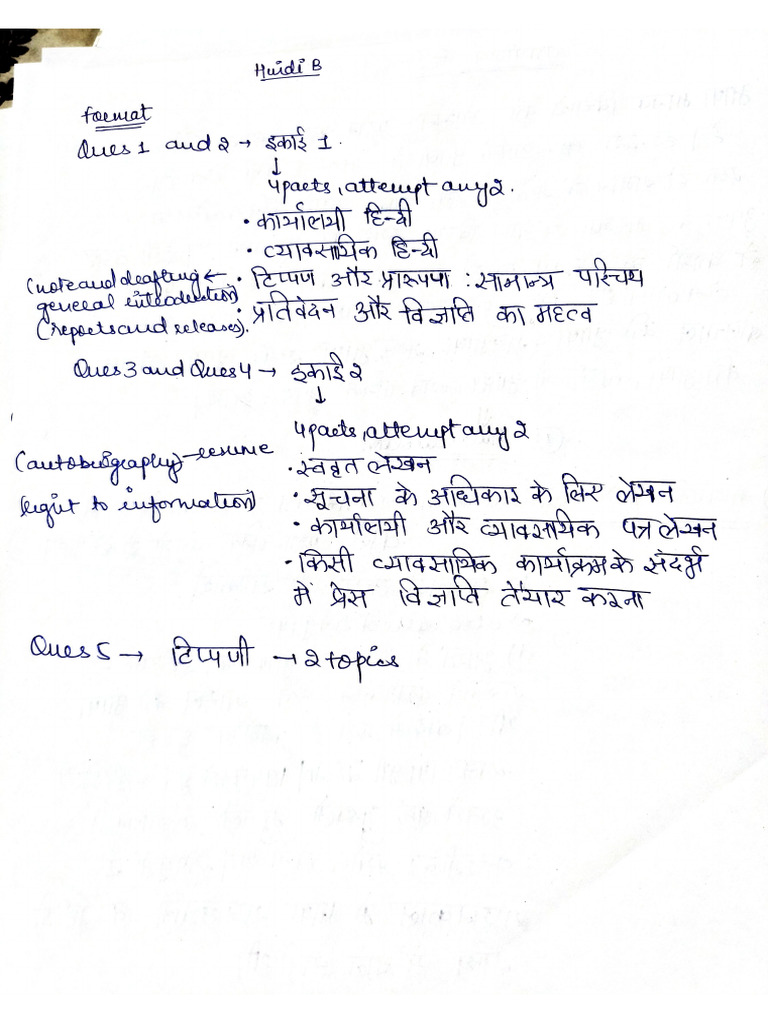 Hindi B
format
Ques 1 and 2 → इकाई 1.
↓
4 parts, attempt any 2.
• कार्यालयी हिन्दी
• व्यावसायिक हिन्दी
(note and drafting ← • टिप्पण और प्रारुपपा : सामान्त्र परिचय
general introduction)
(reports and releases). • प्रतिवेदन और विज्ञप्ति का महत्व
Ques 3 and Ques 4 → इकाई 2
↓
4 parts, attempt any 2
(autobiography) - resume • स्ववृत लेखन
(right to information) • सूचना के अधिकार के लिए लेखन
• कार्यालयी और व्यावसायिक पत्र लेखन
• किसी व्यावसायिक कार्याक्रम के संदर्भ
में प्रेस विज्ञप्ति तैयार करना
Ques 5 → टिप्पणी → 2 topics